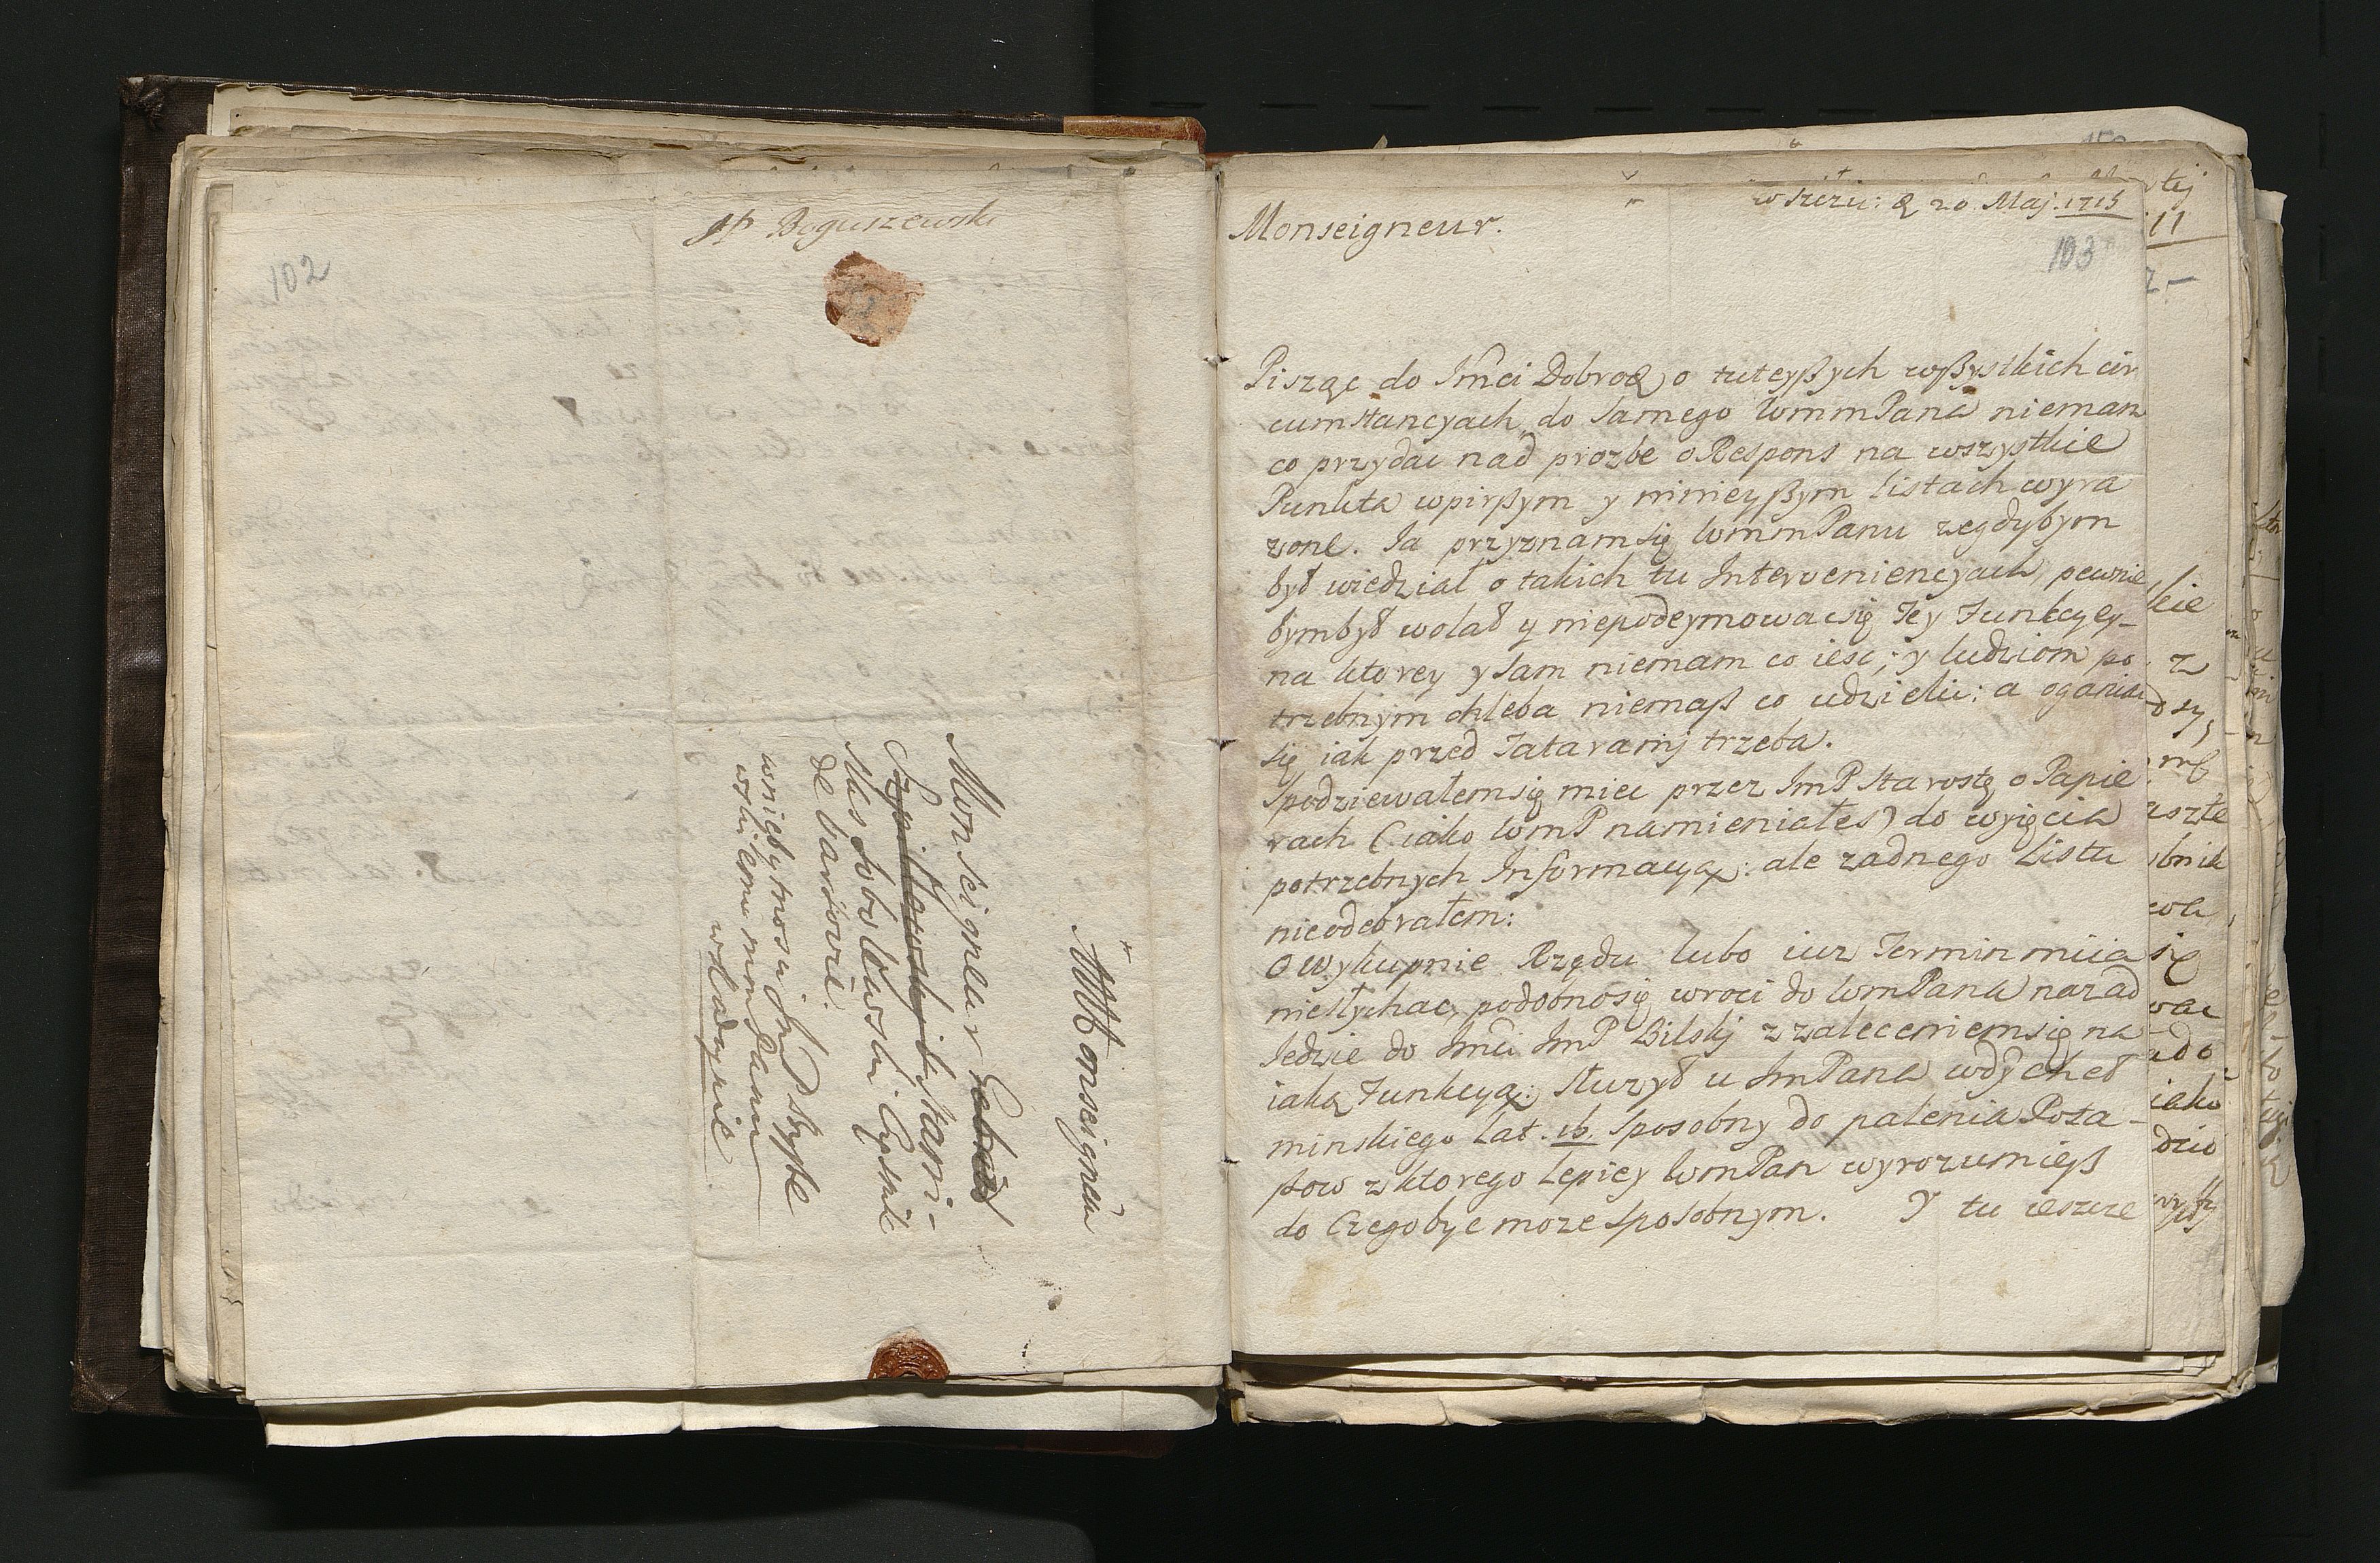 JP Boguszewski
102
Monseigneur
Monseigneur
Stani-
slas Sobolewski.
de Varsovie.
w niebytnosci Jm P
wladzie
w Szczu: d 20 Maj. 1715
Monseigneur.
103
Pisząc do Jmci Dobrođ o tuteyßych wßystkich cir
cumstancyach do samego WmmPana niemam
co przydac nad prozbe o Respons na wszystkie
Punkta wpirßym y minieyßym listach wyra
zone. Ja przyznamsię WmmPanu zegdybym
był wiedział o takich tu Interveniencyach, pewnie
bymbył wolał y niepodeymowacsię Tey Funkcyey-
na ktorey y sam niemam co iesc; y ludziom po
trzebnym chleba niemaß co udzielic: a oganiac
się iak przed Tataramj trzeba.
Spodziewałemsię miec przez ImP Starostę o Papie
rach (iako WmP namieniałes) do wyięcia
potrzebnych Informacyą: ale zadnego Listu
nieodebrałem:
O Wykupnie Rzędu lubo iuz Termin miia
niesłychac, podobnosię wroci do WmPana nazad
Jedzie do Jmci ImP Bilskj z zaleceniemsię na
iaką Funkcyą: Słuzył u ImPana
minskiego Lat .16. Sposobny do palenia Pota-
ßow zktorego Lepiey WmPan wyrozumieß
do Czegobyc moze sposobnym. Y tu ieszcze